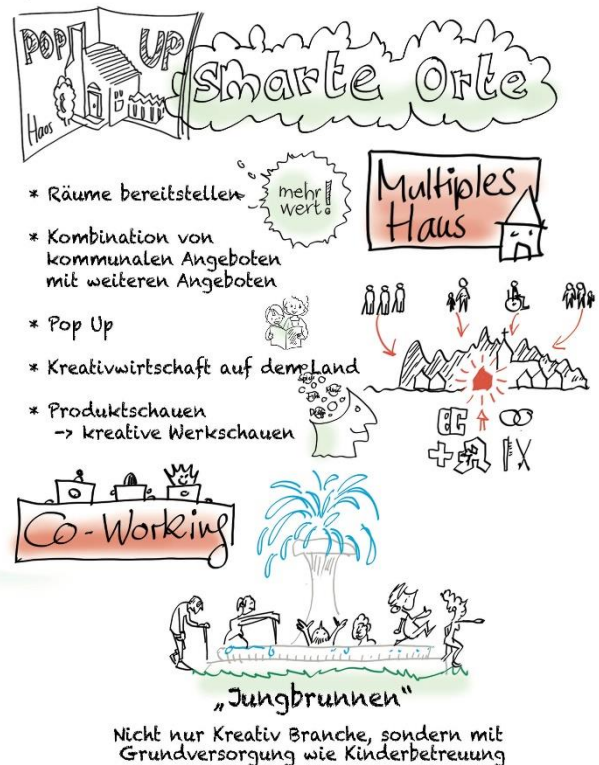 POP UP
Haus
smarte Orte
* Räume bereitstellen
mehr
wert!
* Kombination von
kommunalen Angeboten
mit weiteren Angeboten
* Pop Up
* Kreativwirtschaft auf dem Land
* Produktschauen
-> kreative Werkschauen
Multiples
Haus
Co-Working
„Jungbrunnen“
Nicht nur Kreativ Branche, sondern mit
Grundversorgung wie Kinderbetreuung